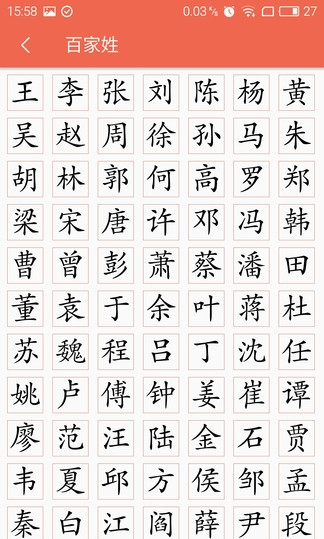 15:58 0.03 K/s 27
百家姓
王 李 张 刘 陈 杨 黄
吴 赵 周 徐 孙 马 朱
胡 林 郭 何 高 罗 郑
梁 宋 唐 许 邓 冯 韩
曹 曾 彭 萧 蔡 潘 田
董 袁 于 余 叶 蒋 杜
苏 魏 程 吕 丁 沈 任
姚 卢 傅 钟 姜 崔 谭
廖 范 汪 陆 金 石 贾
韦 夏 邱 方 侯 邹 孟
秦 白 江 阎 薛 尹 段